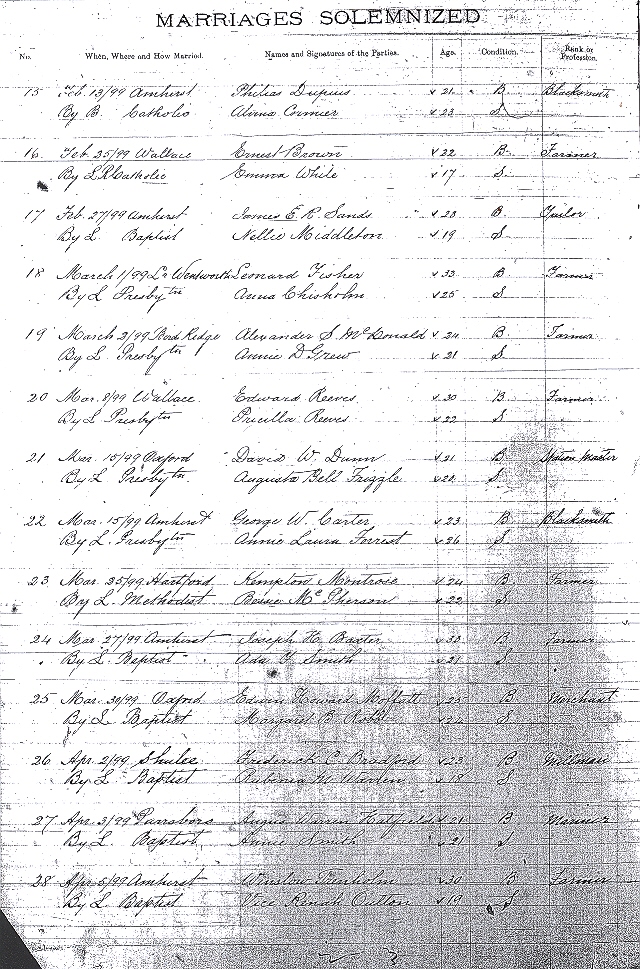 MARRIAGES SOLEMNIZED
No. When, Where and How Married. Names and Signatures of the Parties. Age. Condition. Rank or Profession.
15 Feb. 13/99 Amherst Philias Dupuis v 21 B Blacksmith
By B. Catholic Alvina Cormier v 23 S
16 Feb. 25/99 Wallace Ernest Brown v 22 B Farmer
By L R Catholic Emma White v 17 S
17 Feb. 27/99 Amherst James E. R. Sands v 20 B Tailor
By L Baptist Nellie Middleton v 19 S
18 March 1/99 Lr Wentworth Leonard Fisher v 33 B Farmer
By L Presbytn Anna Chisholm v 25 S
19 March 2/99 Alexander S. McDonald v 24 B Farmer
By L Presbytn Annie D Grew v 21 S
20 Mar. 8/99 Wallace Edward Reeves v 30 B Farmer
By L Presbytn Pricilla Reeves v 22 S
21 Mar. 15/99 Oxford David W. Dunn v 21 B Master
By L Presbytn Augusta Bell Frizzle v 20 S
22 Mar. 15/99 Amherst George W. Carter v 23 B Blacksmith
By L. Presbytn Annie Laura Forrest v 26 S
23 Mar. 25/99 Hartford Kempton Montrose v 24 B Farmer
By L Methodist McPherson v 22 S
24 Mar. 27/99 Amherst Joseph H. Baxter v 30 B Farmer
By L Baptist Ada Smith v 21 S
25 Mar. 30/99 Oxford Edwin Howard Moffatt v 25 B Merchant
By L Baptist Margaret B. v S
26 Apr. 2/99 Shulee Frederick C Bradford v 23 B Millman
By L Baptist M. v 18 S
27 Apr. 3/99 Parrsboro Angus Warren Hatfield v 21 B Mariner
By L Baptist Annie Smith v 21 S
28 Apr. 5/99 Amherst Winslow Trenholm v 30 Farmer
By L Baptist Oulton v 19 S